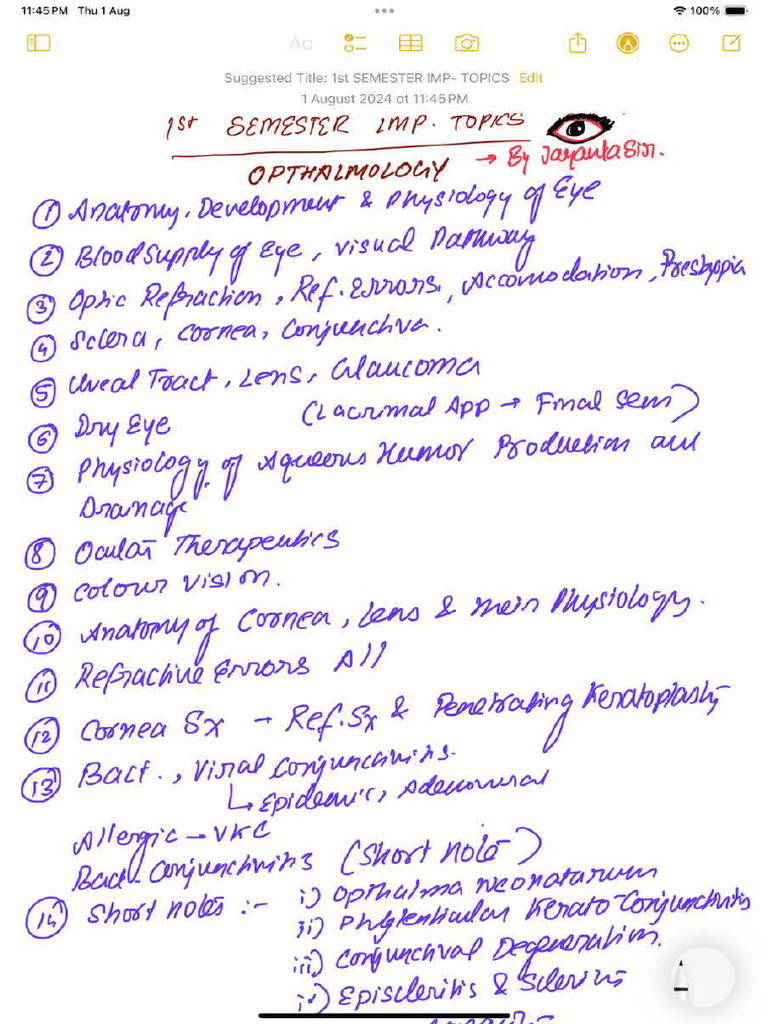 11:45 PM Thu 1 Aug
100%
Aa
Suggested Title: 1st SEMESTER IMP- TOPICS Edit
1 August 2024 at 11:45 PM
1st SEMESTER IMP. TOPICS
OPTHALMOLOGY → By Jayanta Sir.
① Anatomy, Development & Physiology of Eye
② Blood Supply of Eye, Visual Pathway
③ Optic Refraction, Ref. Errors, Accomodation, Presbyopia
④ Sclera, Cornea, Conjunctiva.
⑤ Uveal Tract, Lens, Glaucoma
⑥ Dry Eye (Lacrimal App → Final Sem)
⑦ Physiology of Aqueous Humor Production and
Drainage
⑧ Ocular Therapeutics
⑨ Colour Vision.
⑩ Anatomy of Cornea, Lens & their Physiology.
⑪ Refractive Errors All
⑫ Cornea Sx → Ref. Sx & Penetrating Keratoplasty
⑬ Bact., Viral Conjunctivitis.
↳ Epidemic, Adenoviral
Allergic → VKC
Bact- Conjunctivitis (Short note)
⑭ Short notes :- i) Opthalma Neonatarum
ii) Phlyctenticular Kerato-Conjunctivitis
iii) Conjunctival Degeneration.
iv) Episcleritis & Scleritis